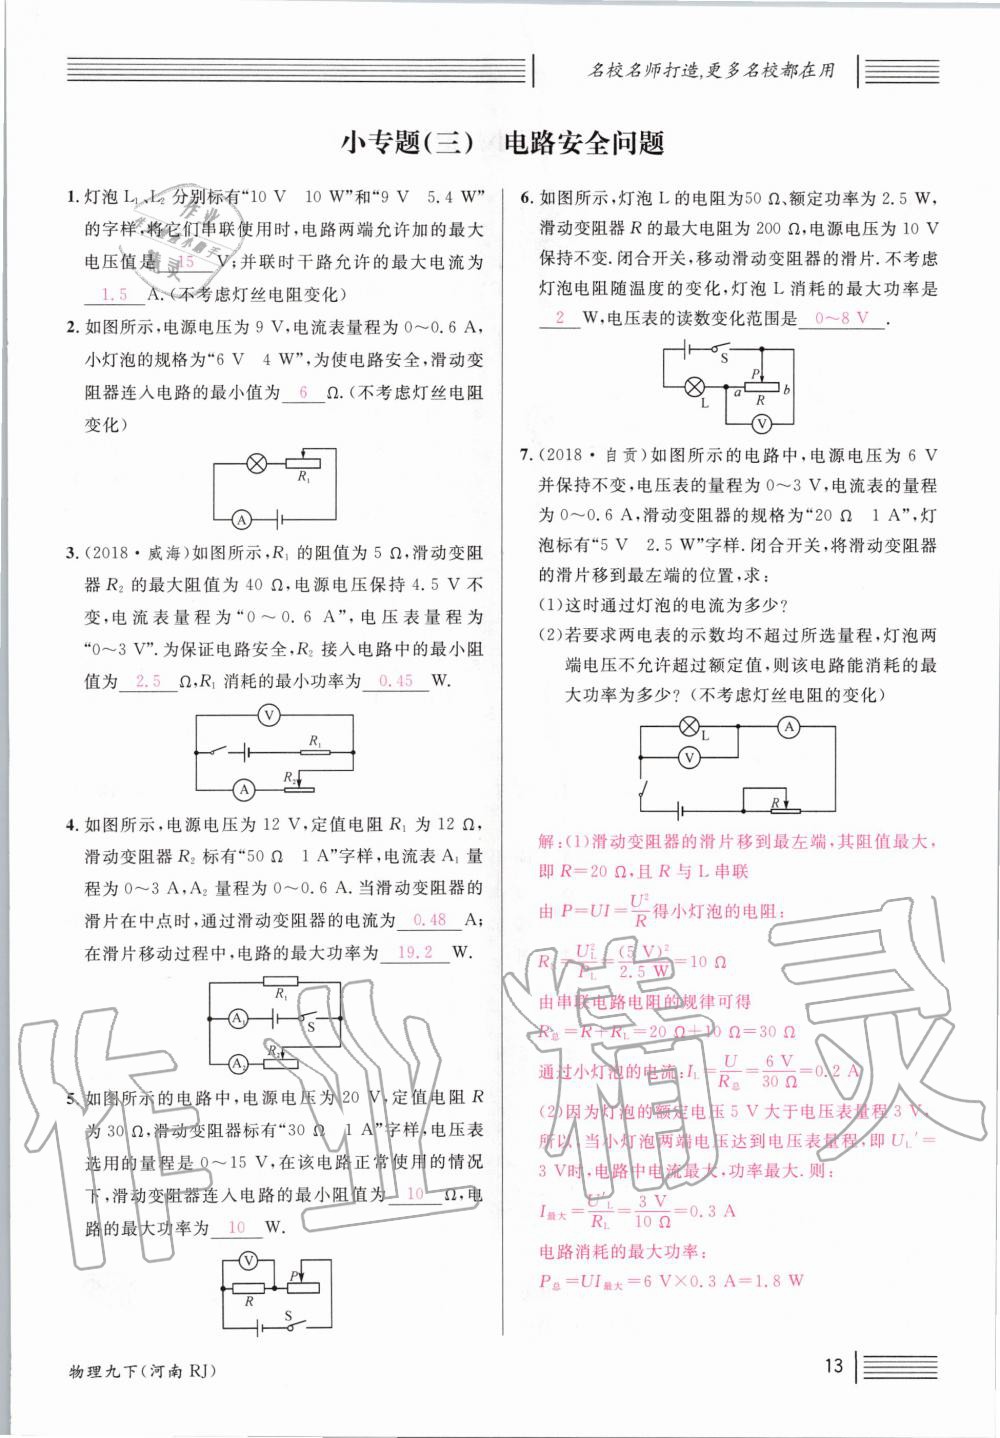 名校名师打造,更多名校都在用
小专题(三) 电路安全问题
1. 灯泡 L₁、L₂ 分别标有“10 V 10 W”和“9 V 5.4 W”
的字样,将它们串联使用时,电路两端允许加的最大
电压值是 15 V;并联时干路允许的最大电流为
1.5 A.(不考虑灯丝电阻变化)
2. 如图所示,电源电压为 9 V,电流表量程为 0～0.6 A,
小灯泡的规格为“6 V 4 W”,为使电路安全,滑动变
阻器连入电路的最小值为 6 Ω.(不考虑灯丝电阻
变化)
R₁
A
3. (2018·威海)如图所示,R₁ 的阻值为 5 Ω,滑动变阻
器 R₂ 的最大阻值为 40 Ω,电源电压保持 4.5 V 不
变,电流表量程为“0～0.6 A”,电压表量程为
“0～3 V”.为保证电路安全,R₂ 接入电路中的最小阻
值为 2.5 Ω,R₁ 消耗的最小功率为 0.45 W.
V
R₁
R₂
A
4. 如图所示,电源电压为 12 V,定值电阻 R₁ 为 12 Ω,
滑动变阻器 R₂ 标有“50 Ω 1 A”字样,电流表 A₁ 量
程为 0～3 A,A₂ 量程为 0～0.6 A.当滑动变阻器的
滑片在中点时,通过滑动变阻器的电流为 0.48 A;
在滑片移动过程中,电路的最大功率为 19.2 W.
R₁
A₁
S
R₂
A₂
5. 如图所示的电路中,电源电压为 20 V,定值电阻 R
为 30 Ω,滑动变阻器标有“30 Ω 1 A”字样,电压表
选用的量程是 0～15 V,在该电路正常使用的情况
下,滑动变阻器连入电路的最小阻值为 10 Ω,电
路的最大功率为 10 W.
V
P
R
S
6. 如图所示,灯泡 L 的电阻为50 Ω、额定功率为 2.5 W,
滑动变阻器 R 的最大电阻为 200 Ω,电源电压为 10 V
保持不变.闭合开关,移动滑动变阻器的滑片.不考虑
灯泡电阻随温度的变化,灯泡 L 消耗的最大功率是
2 W,电压表的读数变化范围是 0～8 V .
S
P
a b
L R
V
7. (2018·自贡)如图所示的电路中,电源电压为 6 V
并保持不变,电压表的量程为 0～3 V,电流表的量程
为 0～0.6 A,滑动变阻器的规格为“20 Ω 1 A”,灯
泡标有“5 V 2.5 W”字样.闭合开关,将滑动变阻器
的滑片移到最左端的位置,求:
(1)这时通过灯泡的电流为多少?
(2)若要求两电表的示数均不超过所选量程,灯泡两
端电压不允许超过额定值,则该电路能消耗的最
大功率为多少?(不考虑灯丝电阻的变化)
L A
V
R
解:(1)滑动变阻器的滑片移到最左端,其阻值最大,
即 R=20 Ω,且 R 与 L 串联
由 P=UI=U²/R 得小灯泡的电阻:
R_L=U_L²/P_L=(5 V)²/2.5 W=10 Ω
由串联电路电阻的规律可得
R总=R+R_L=20 Ω+10 Ω=30 Ω
通过小灯泡的电流:I_L=U/R总=6 V/30 Ω=0.2 A
(2)因为灯泡的额定电压 5 V 大于电压表量程 3 V,
所以,当小灯泡两端电压达到电压表量程,即 U_L′=
3 V时,电路中电流最大,功率最大.则:
I最大=U′_L/R_L=3 V/10 Ω=0.3 A
电路消耗的最大功率:
P总=UI最大=6 V×0.3 A=1.8 W
作业精灵
物理九下(河南 RJ)
13